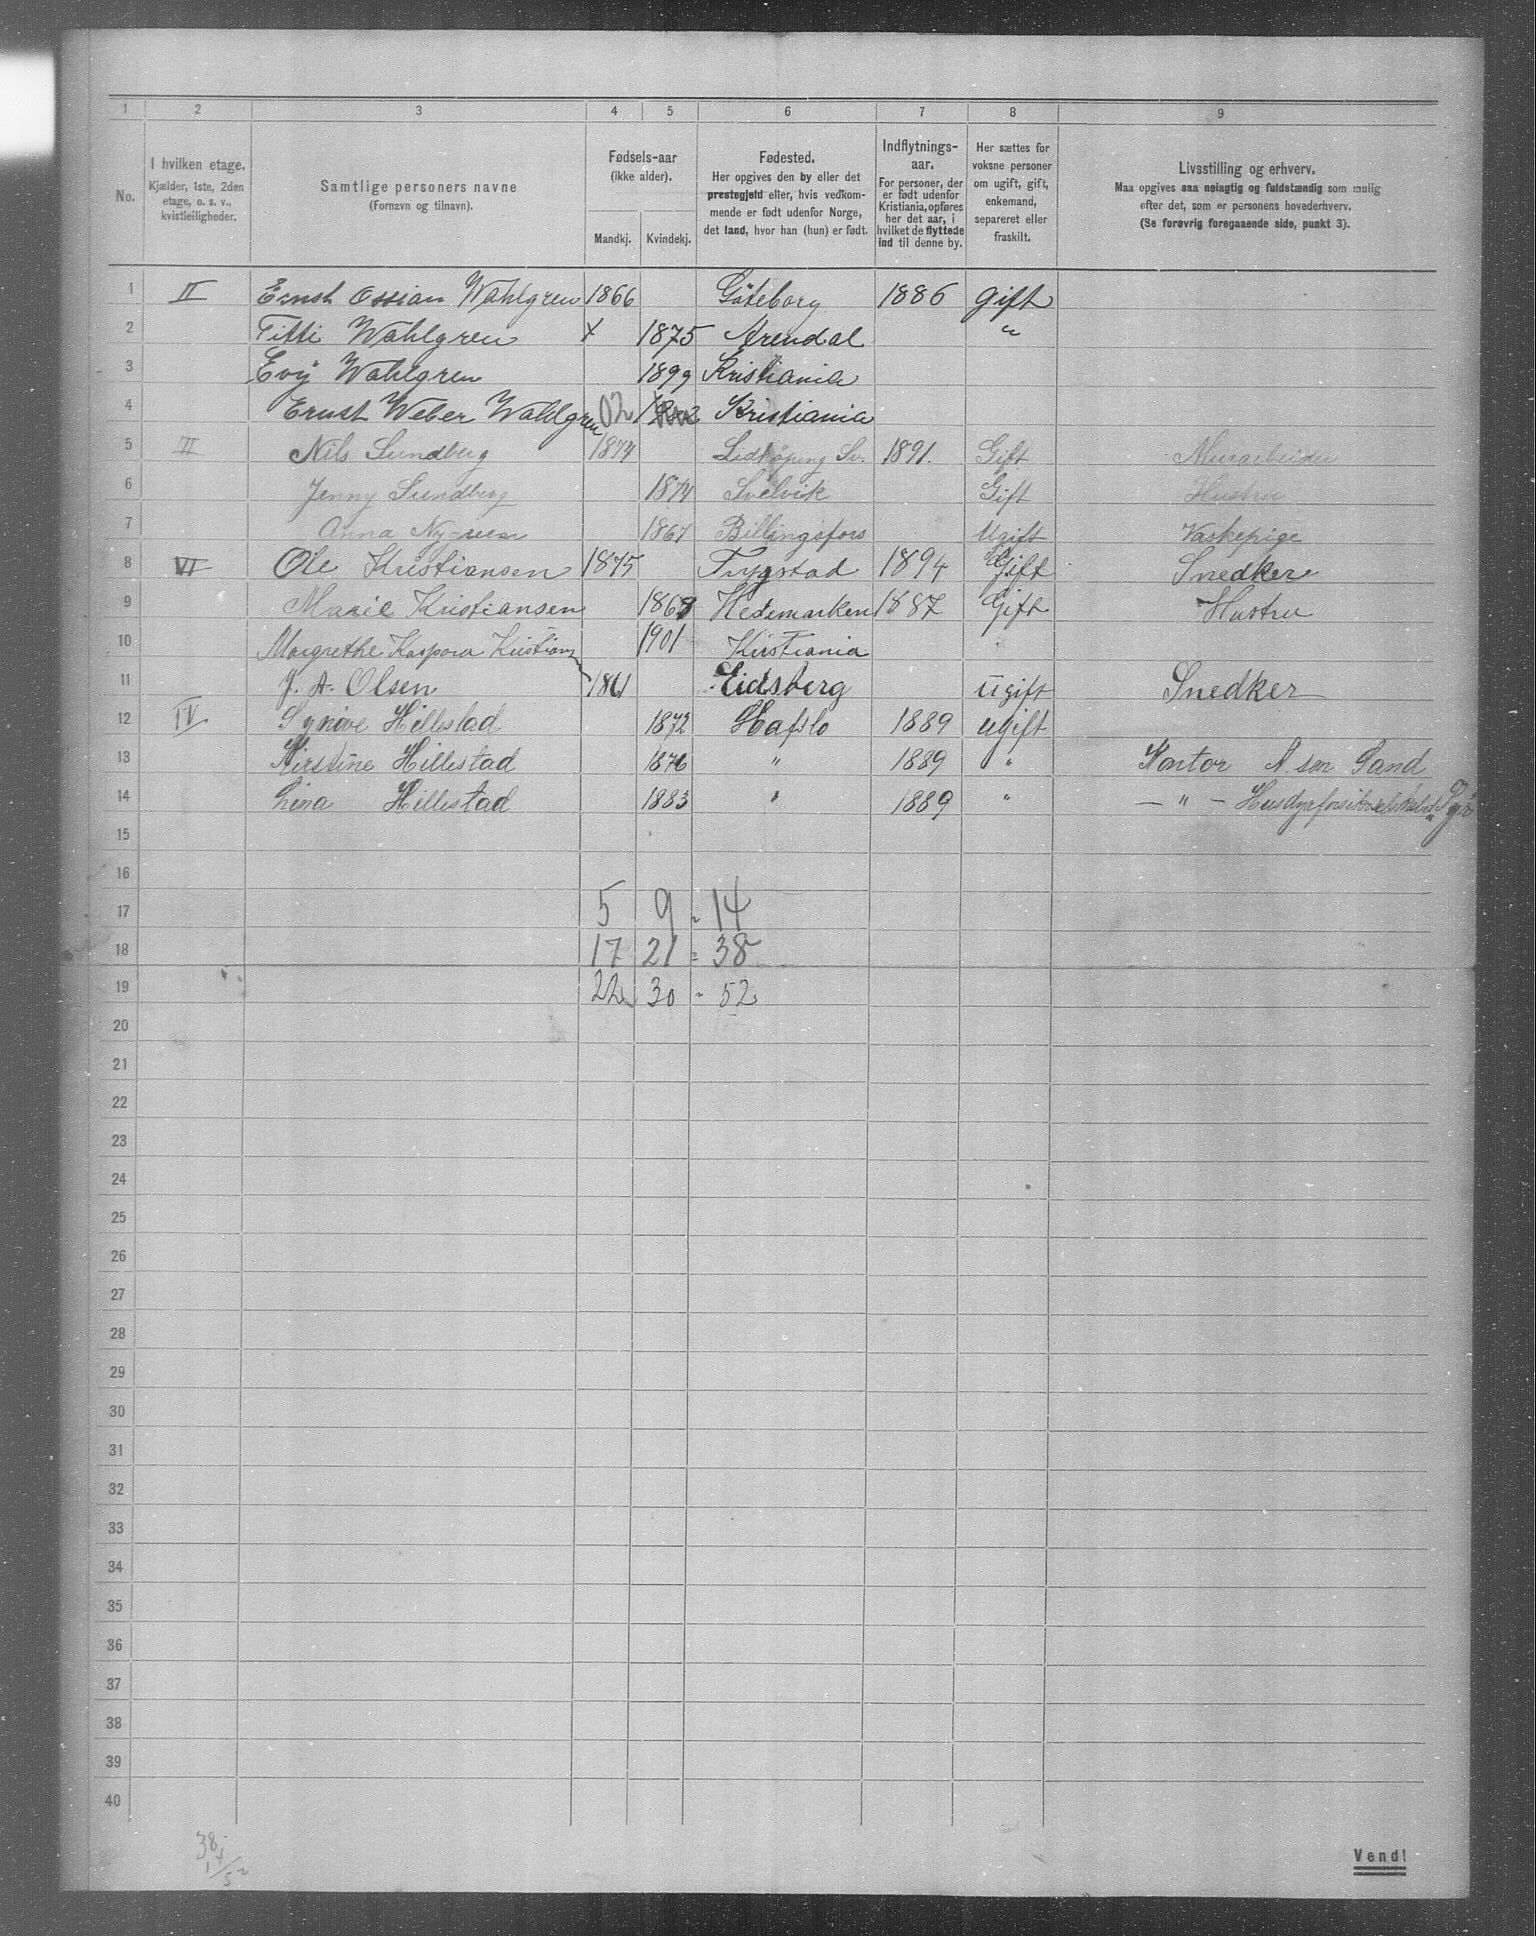 1 2 3 4 5 6 7 8 9
No.
I hvilken etage.
Kjælder, 1ste, 2den
etage, o. s. v.,
kvistleiligheder.
Samtlige personers navne
(Fornavn og tilnavn).
Fødsels-aar
(ikke alder).
Mandkj. Kvindekj.
Fødested.
Her opgives den by eller det
prestegjeld eller, hvis vedkom-
mende er født udenfor Norge,
det land, hvor han (hun) er født.
Indflytnings-
aar.
For personer, der
er født udenfor
Kristiania, opføres
her det aar, i
hvilket de flyttede
ind til denne by.
Her sættes for
voksne personer
om ugift, gift,
enkemand,
separeret eller
fraskilt.
Livsstilling og erhverv.
Maa opgives saa nøiagtig og fuldstændig som mulig
efter det, som er personens hovederhverv.
(Se forøvrig foregaaende side, punkt 3).
1 II Ernst Ossian Wahlgren 1866 Göteborg 1886 gift
2 Titti Wahlgren x 1875 Arendal "
3 Evy Wahlgren 1899 Kristiania
4 Ernst Weber Wahlgren 02 Kristiania
5 III Nils Sundberg 1874 Lidköping Sv. 1891. Gift Murarbeider
6 Jenny Sundberg 1874 Svelvik Gift Hustru
7 Anna Nygreen 1867 Billingsfors Ugift Vaskepige
8 VI Ole Kristiansen 1875 Trygstad 1894 Gift Snedker
9 Marie Kristiansen 1868 Hedemarken 1887 Gift Hustru
10 Margrethe Kaspora Kristians 1901 Kristiania
11 J. A. Olsen 1861 Eidsberg ugift Snedker
12 IV Synøve Hillestad 1872 Hafslo 1889 ugift
13 Kirstine Hillestad 1876 " 1889 " Kontor A son Sand
14 Lina Hillestad 1883 " 1889 " — " —
15
16
17 5 9 = 14
18 17 21 = 38
19 22 30 = 52
20
21
22
23
24
25
26
27
28
29
30
31
32
33
34
35
36
37
38
39
40
38
14
52
Vend!